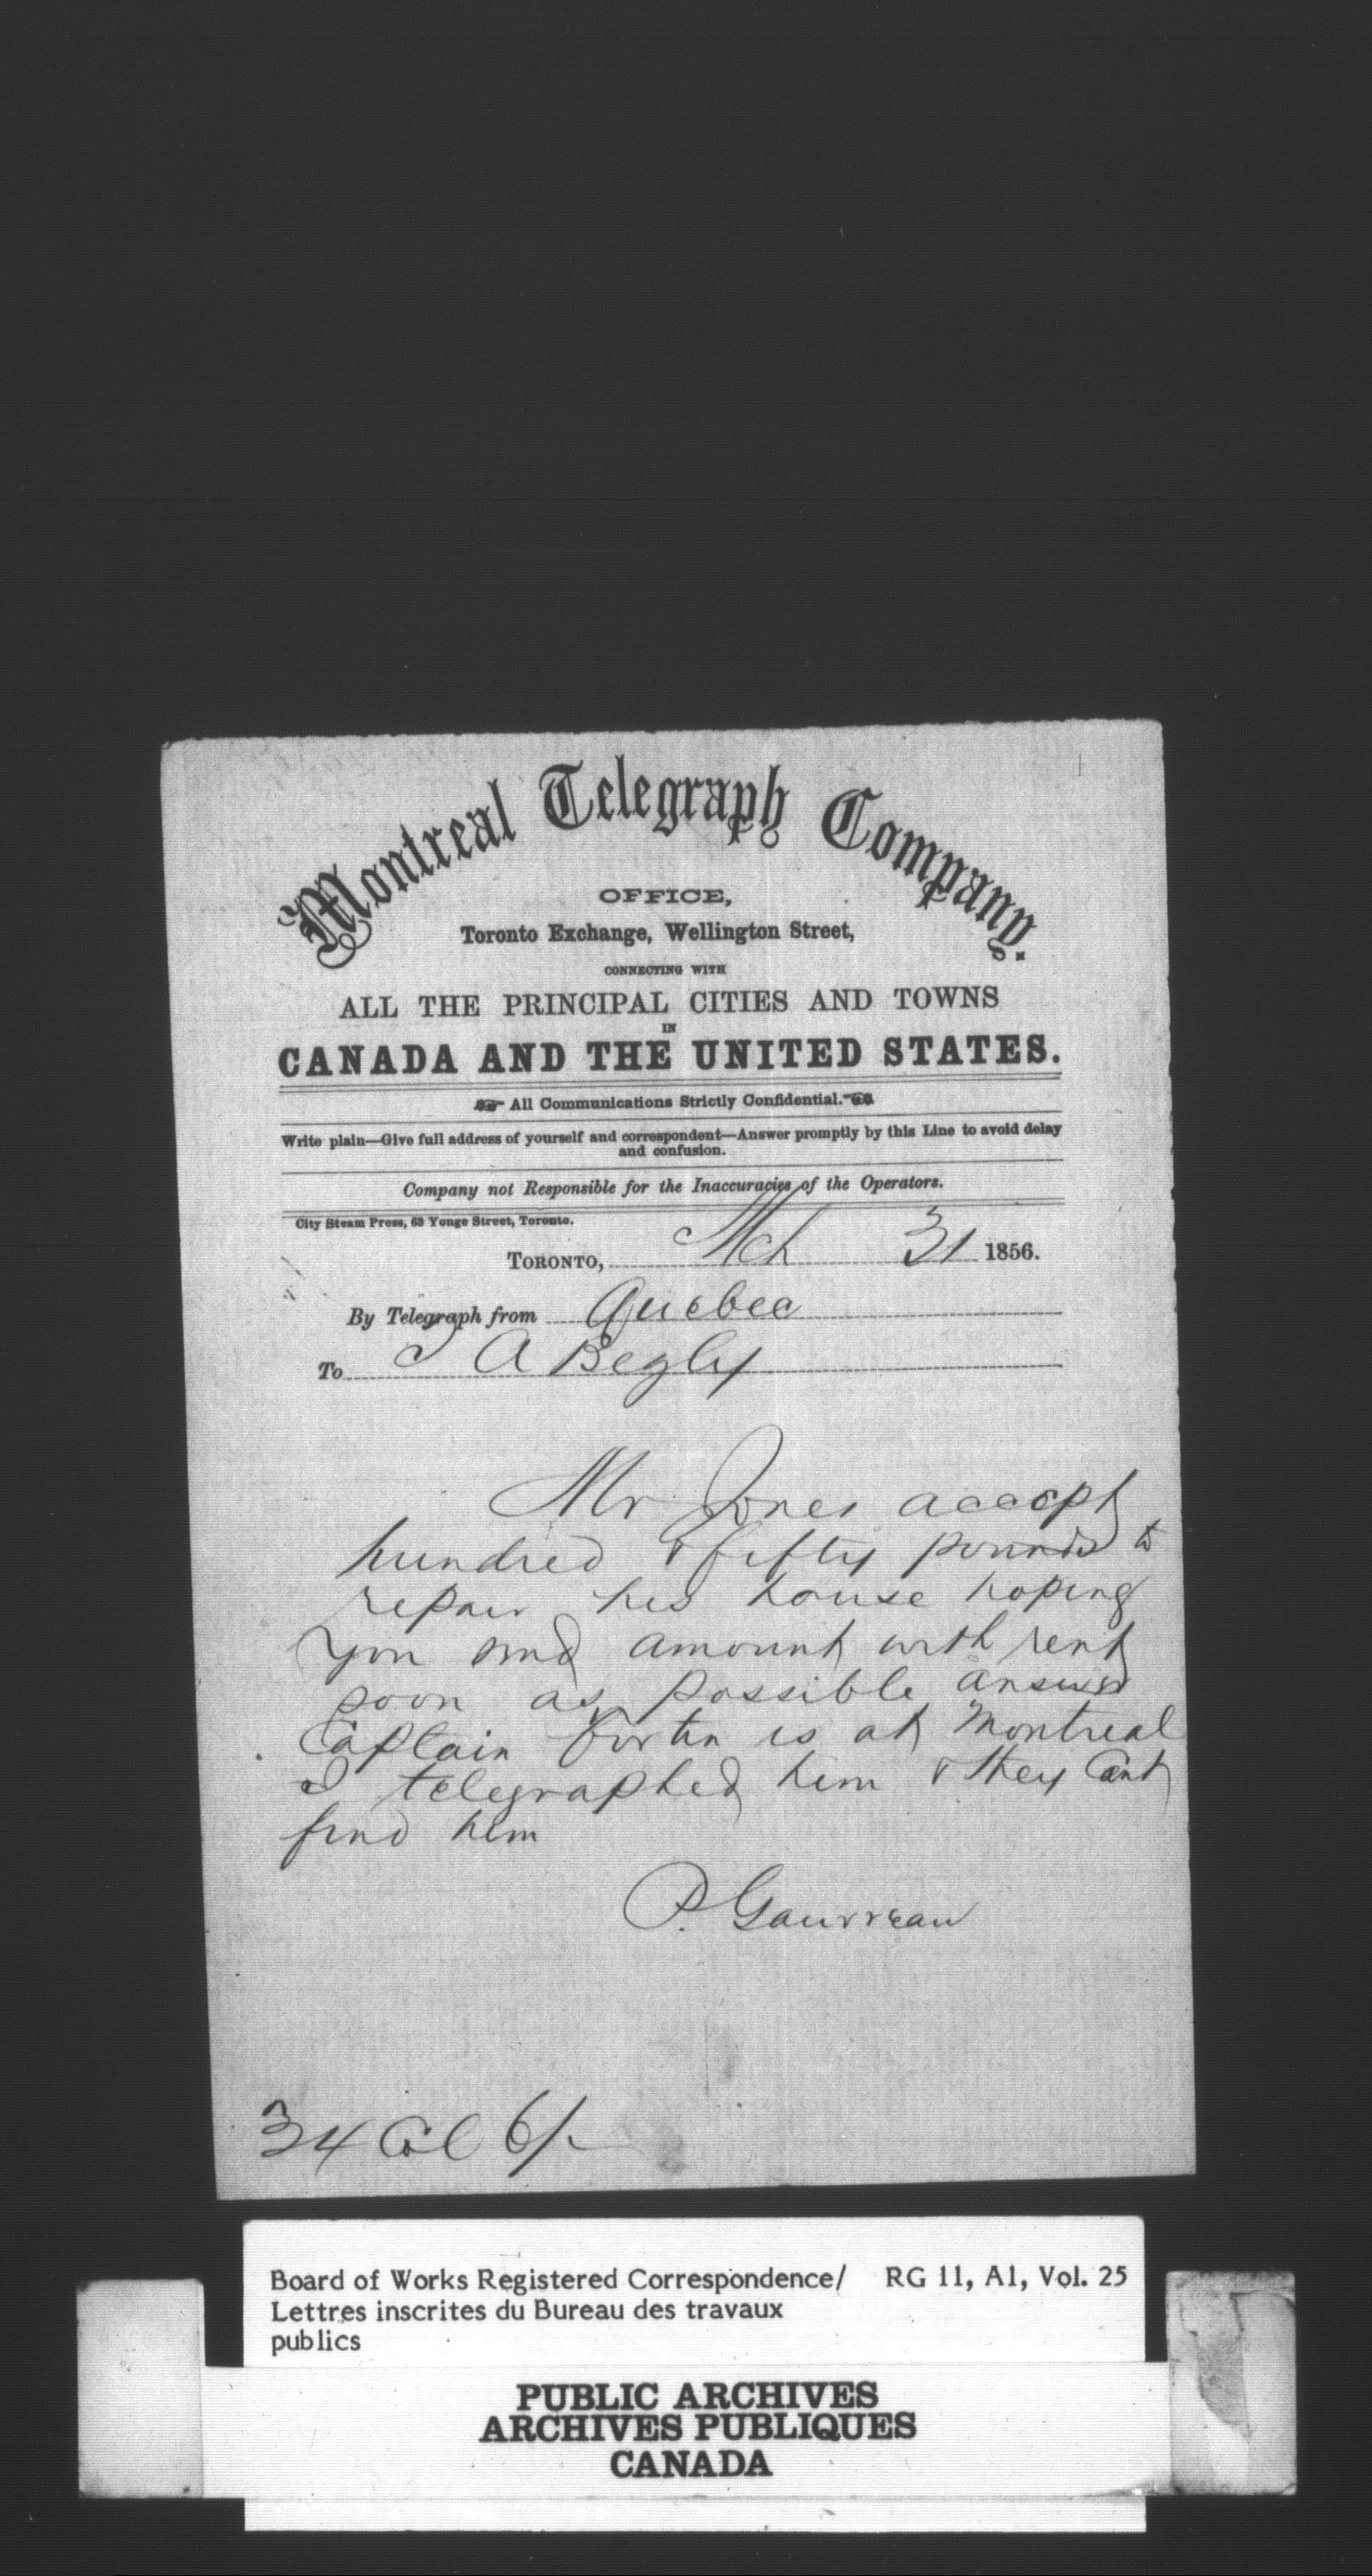 Montreal Telegraph Company.
OFFICE,
Toronto Exchange, Wellington Street,
CONNECTING WITH
ALL THE PRINCIPAL CITIES AND TOWNS
IN
CANADA AND THE UNITED STATES.
All Communications Strictly Confidential.
Write plain—Give full address of yourself and correspondent—Answer promptly by this Line to avoid delay
and confusion.
Company not Responsible for the Inaccuracies of the Operators.
City Steam Press, 63 Yonge Street, Toronto.
TORONTO, Mch 31 1856.
By Telegraph from Quebec
To T A Begly
Mr Jones accept
hundred & fifty pounds to
repair his house hoping
you send amount with rent
soon as possible answer
Captain Fortin is at Montreal
I telegraphed him & they cant
find him
P. Gauvreau
34 Col 6/-
Board of Works Registered Correspondence/ RG 11, A1, Vol. 25
Lettres inscrites du Bureau des travaux
publics
PUBLIC ARCHIVES
ARCHIVES PUBLIQUES
CANADA